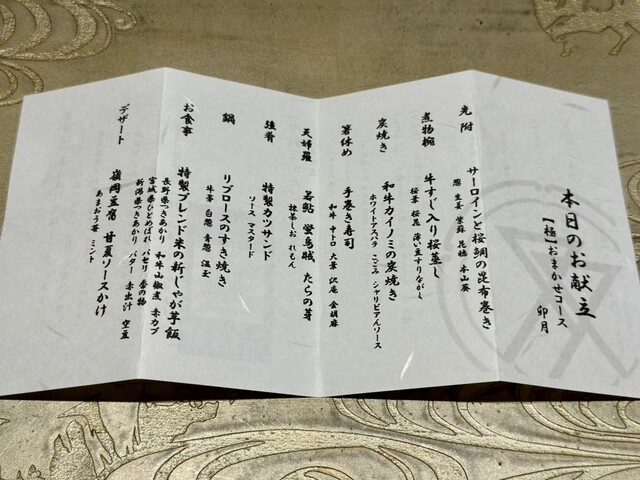 本日のお献立
【極】おまかせコース
卯月
先附
サーロインと桜鯛の昆布巻き
葱 生姜 蛍蘇 花穂 本山葵
煮物椀
牛すじ入り桜蒸し
桜葉 桜花 薄い豆すりながし
炭焼き
和牛カイノミの炭焼き
ホワイトアスパラ こごみ シャリピアンソース
箸休め
手巻き寿司
和牛 中トロ 大葉 沢庵 金胡麻
天婦羅
若鮎 蛍烏賊 たらの芽
抹茶しお れもん
強肴
特製カツサンド
ソース マスタード
鍋
リブロースのすき焼き
牛蒡 白葱 青葱 温玉
お食事
特製ブレンド米の新じゃが芋飯
長野県つきあかり 和牛山椒煮 赤カブ
宮城県ひとめぼれ パセリ 香の物
新潟県つきあかり バター 赤出汁 空豆
デザート
嶺岡豆腐 甘夏ソースかけ
あまおう苺 ミント